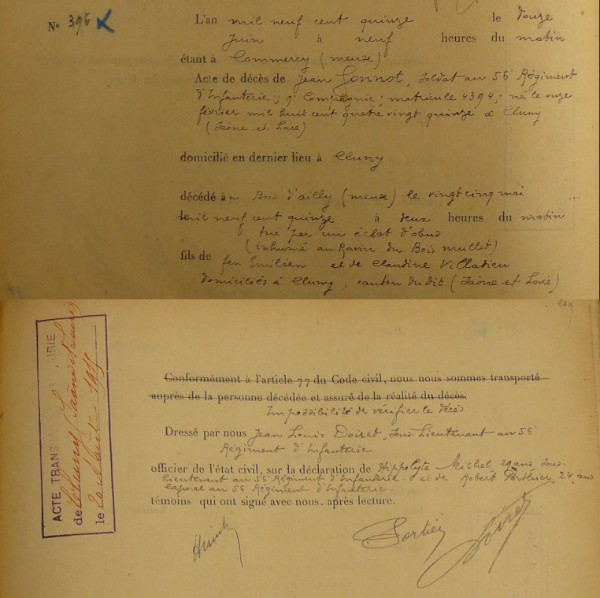 No 396 L'an mil neuf cent quinze le douze
Juin à neuf heures du matin
étant à Commercy (meuse)
Acte de décès de Jean Gonnot, soldat au 56e Régiment
d'Infanterie, 9e Compagnie, matricule 4394, né le onze
février mil huit cent quatre vingt quinze à Cluny
(Saône et Loire)
domicilié en dernier lieu à Cluny
décédé au Bois d'ailly (meuse) le vingt cinq mai
mil neuf cent quinze à deux heures du matin
tué par un éclat d'obus
(inhumé au Ravin du Bois mullot)
fils de feu Emilien et de Claudine Villatieu
domiciliés à Cluny, canton du dit (Saône et Loire)
Conformément à l'article 77 du Code civil, nous nous sommes transporté
auprès de la personne décédée et assuré de la réalité du décès.
Impossibilité de vérifier le décès
Dressé par nous Jean Louis Doiret, Sous Lieutenant au 56
Régiment d'Infanterie
officier de l'état civil, sur la déclaration de Hippolyte Michel, 29 ans, Sous-
lieutenant au 56e Régiment d'Infanterie et de Robert Porthier, 24 ans
caporal au 56e Régiment d'Infanterie
témoins qui ont signé avec nous, après lecture.
ACTE
de Cluny
le